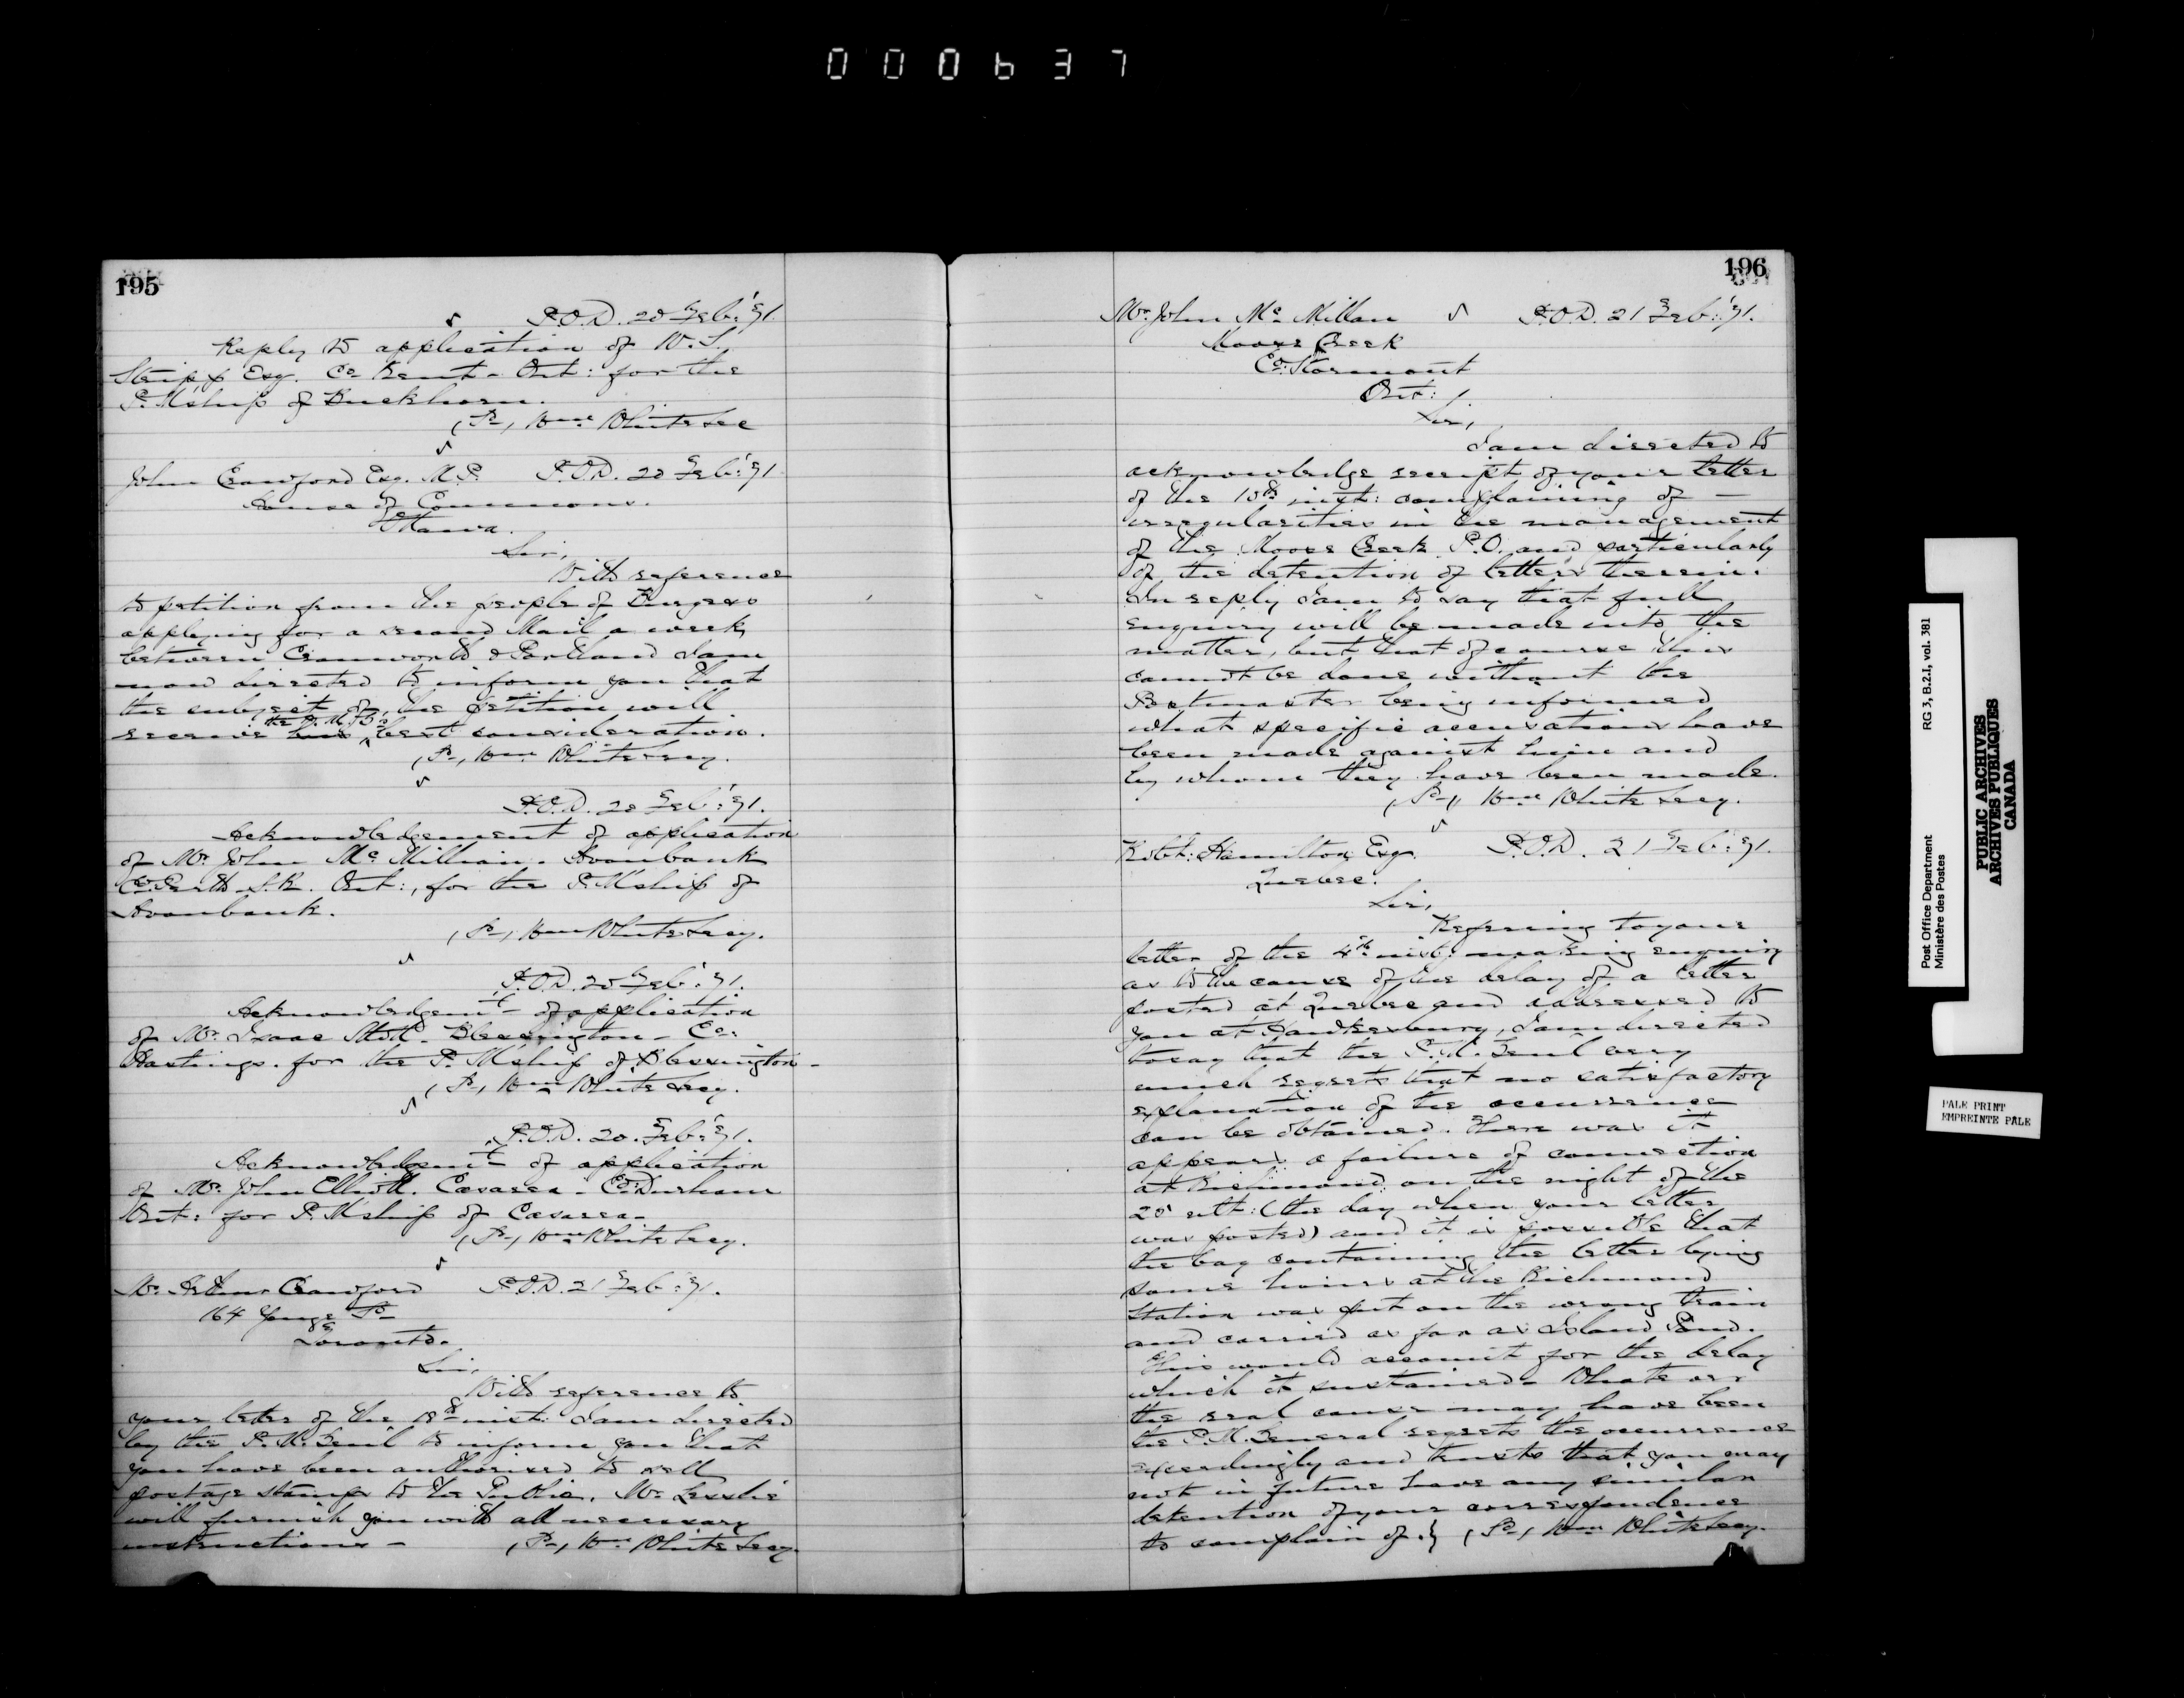 000637
195
P.O.D. 20 Feb: '71.
Reply to application of W. S.
Esq. Co Kent - Ont: for the
P. M'ship of Buckhorn.
(Sd) Wm White Sec
John Crawford Esq. M.P. P.O.D. 20 Feb: '71
House of Commons.
Ottawa.
Sir,
With reference
to petition from the people of Burgess
applying for a second Mail a week
between Cranworth & Portland I am
now directed to inform you that
the subject of the petition will
receive the P. M. G's best consideration.
(Sd) Wm White Secy.
P.O.D. 20 Feb: '71.
Acknowledgement of application
of Mr. John McMillan. Avonbank
Co. Perth S.R. Ont:, for the P. M'ship of
Avonbank.
(Sd) Wm White Secy.
P.O.D. 20 Feb: '71.
Acknowledgemt of application
of Mr. Isaac Stott - Blessington - Co:
Hastings. for the P. Mship of Blessington -
(Sd) Wm White Secy.
P.O.D. 20. Feb: '71.
Acknowledgemt of application
of Mr. John Elliott. Cæsarea - Co. Durham
Ont: for P. M'ship of Cæsarea -
(Sd) Wm White Secy.
Mr. Arthur Crawford P.O.D. 21 Feb: '71.
164 Yonge St
Toronto.
Sir,
With reference to
your letter of the 18th inst: I am directed
by the P. M. Genl to inform you that
you have been authorised to sell
postage stamps to the Public. Mr. Lesslie
will furnish you with all necessary
instructions - (Sd) Wm White Secy.
196
Mr. John McMillan P.O.D. 21 Feb: '71.
Moose Creek
Co. Stormont
Ont:
Sir,
I am directed to
acknowledge receipt of your letter
of the 10th inst: complaining of -
irregularities in the management
of the Moose Creek P.O. and particularly
of the detention of letters therein.
In reply I am to say that full
enquiry will be made into the
matter, but that of course this
cannot be done without the
Postmaster being informed
what specific accusations have
been made against him and
by whom they have been made.
(Sd) Wm White Secy.
Robt: Hamilton Esq. P.O.D. 21 Feb: '71.
Quebec.
Sir,
Referring to your
letter of the 4th inst: making enquiry
as to the cause of the delay of a letter
posted at Quebec and addressed to
you at Hawkesbury, I am directed
to say that the P. M. Genl very
much regrets that no satisfactory
explanation of the occurrence
can be obtained. There was it
appears a failure of connection
at Richmond on the night of the
20 ult: (the day when your letter
was posted) and it is possible that
the bag containing the letter lying
some hours at the Richmond
Station was put on the wrong train
and carried as far as Island Pond.
This would account for the delay
which it sustained - Whatever
the real cause may have been
the P.M. General regrets the occurrence
exceedingly and trusts that you may
not in future have any similar
detention of your correspondence
to complain of.} (Sd) Wm White Secy.
Post Office Department RG 3, B.2.I, vol. 381
Ministère des Postes
PUBLIC ARCHIVES
ARCHIVES PUBLIQUES
CANADA
PALE PRINT
EMPREINTE PALE